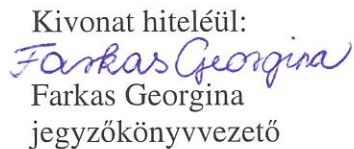 Kivonat hiteléül:
Farkas Georgina
Farkas Georgina
jegyzőkönyvvezető